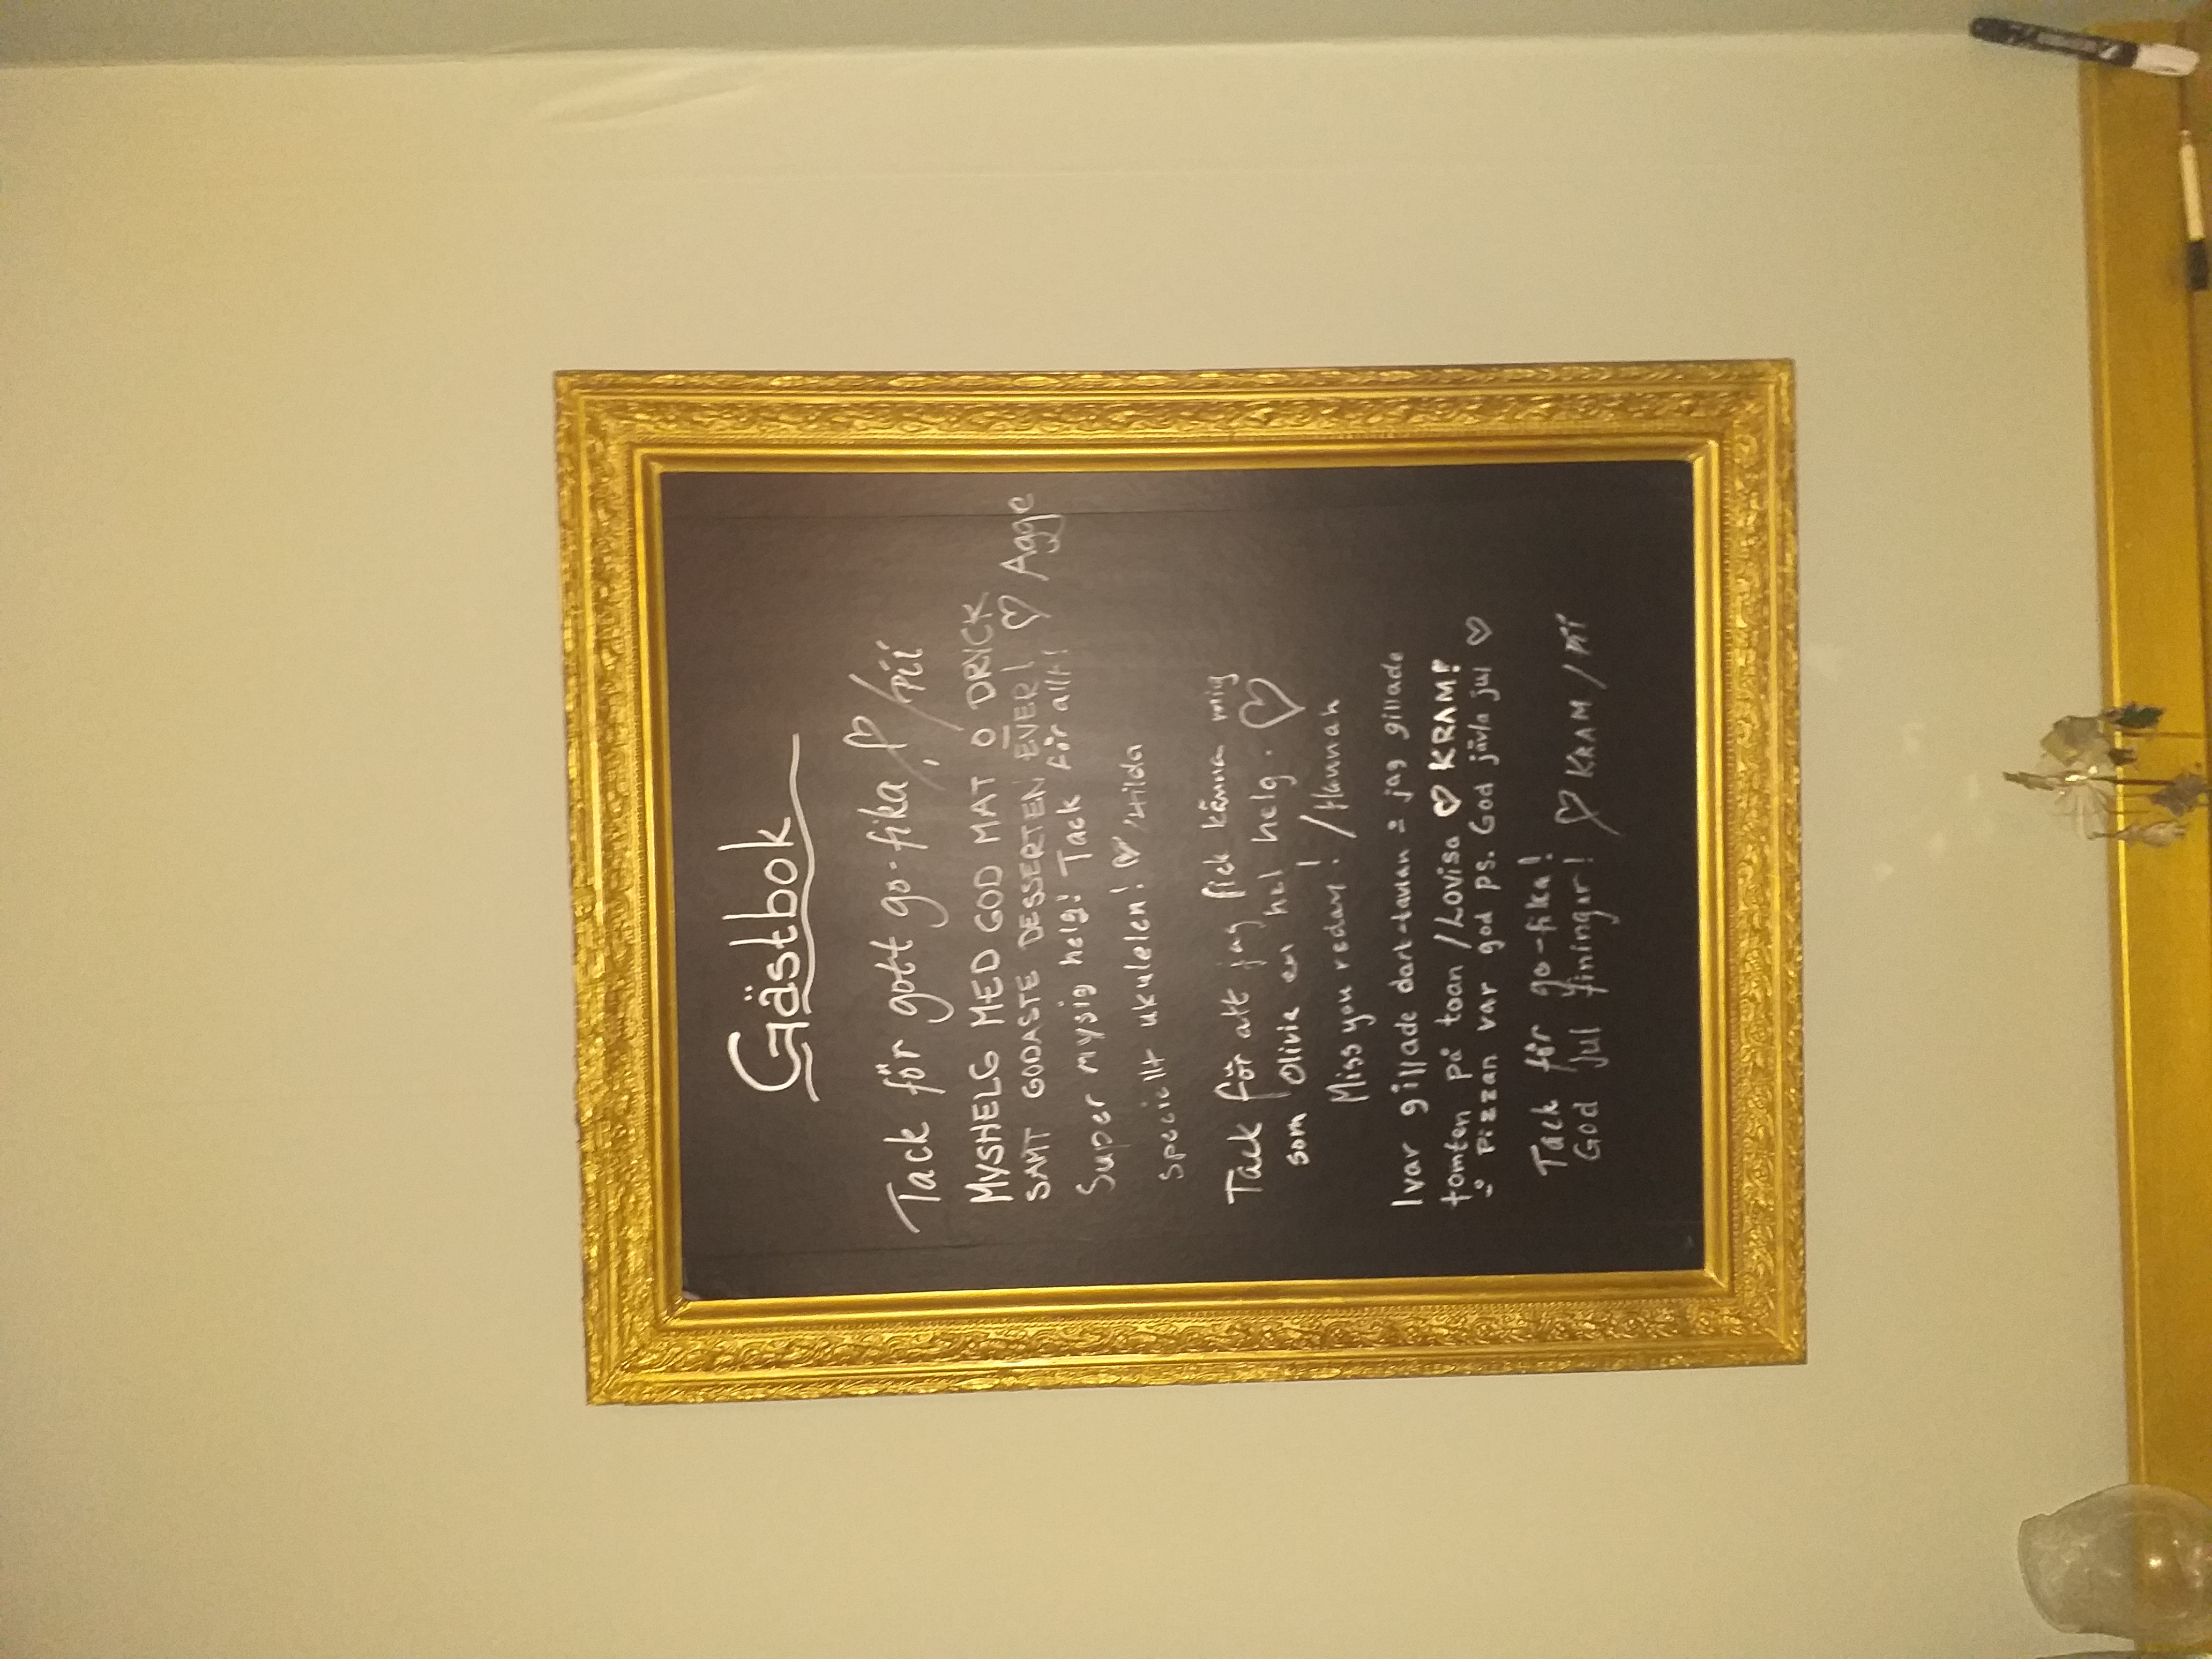 Gästbok
Tack för gott go-fika! /Pii
MYSHELG MED GOD MAT O DRYCK
SAMT GODASTE DESSERTEN EVER! ♡ Agge
Super mysig helg! Tack för allt!
Speciellt ukulelen! ♡ /Hilda
Tack för att jag fick känna mig
som Olivia en hel helg. ♡
Miss you redan! /Hannah
Ivar gillade dart-tavlan & jag gillade
tomten på toan /Lovisa ♡ KRAM!
& Pizzan var god ps. God jävla jul ♡
Tack för go-fika!
God Jul finingar! ♡ KRAM /Pii